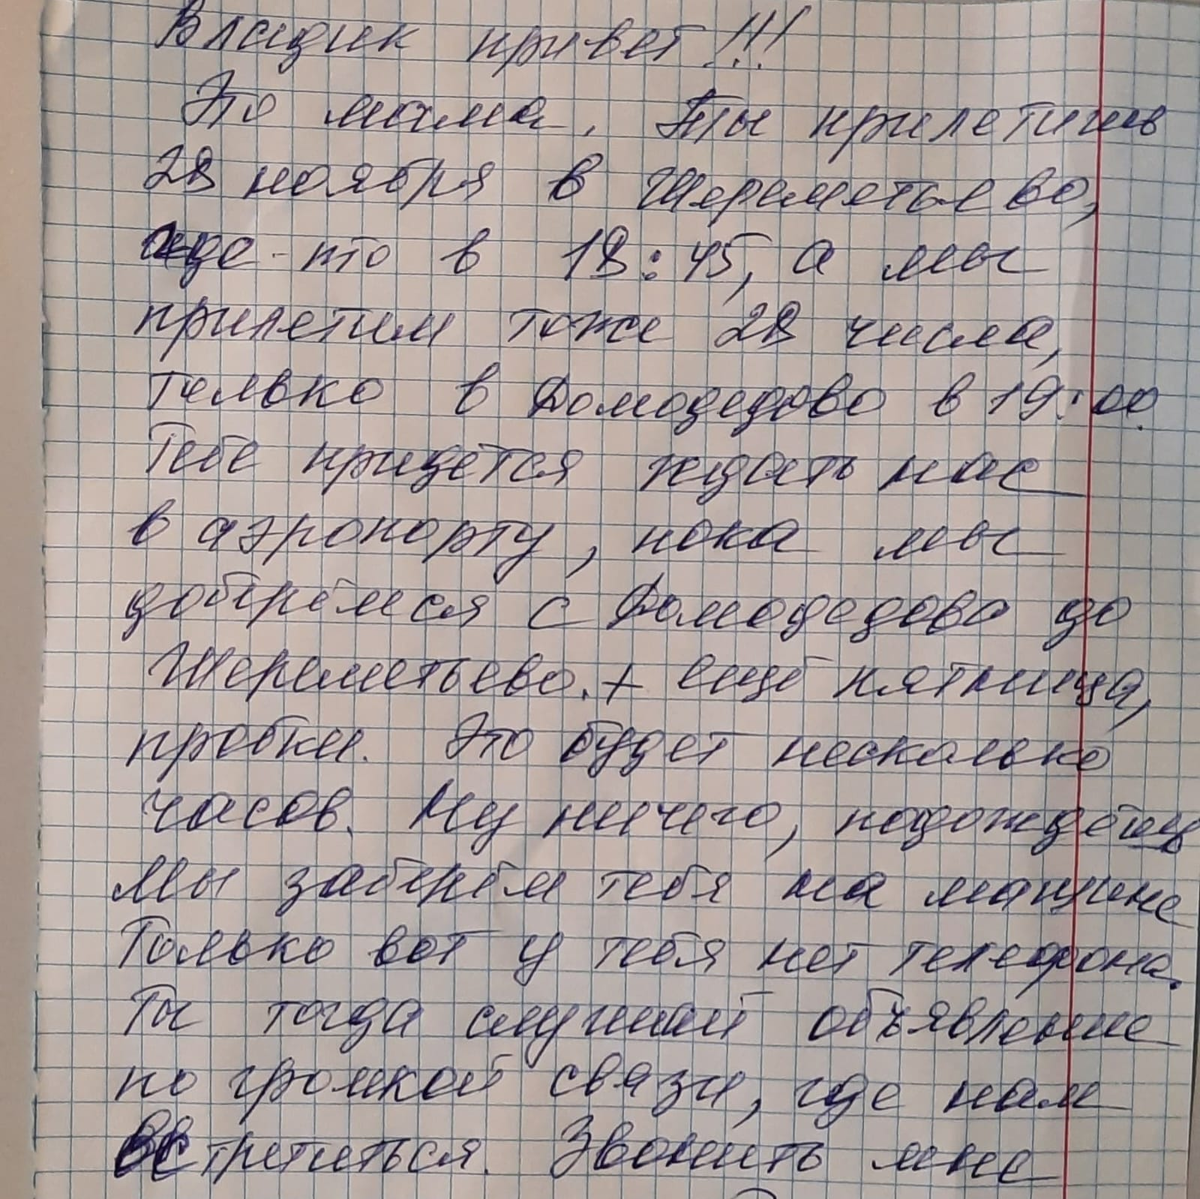 Владик привет!!!
Это мама. Ты прилетишь
28 ноября в Шереметьево,
где-то в 18:45, а мы
прилетим тоже 28 числа,
только в Домодедово в 19:00.
Тебе придётся ждать нас
в аэропорту, пока мы
доберёмся с Домодедово до
Шереметьево. + ещё пятница,
пробки. Это будет несколько
часов. Ну ничего, подождёшь
Мы заберём тебя на машине
Только вот у тебя нет телефона.
Ты тогда слушай объявление
по громкой связи, где нам
встретиться. Звонить мне